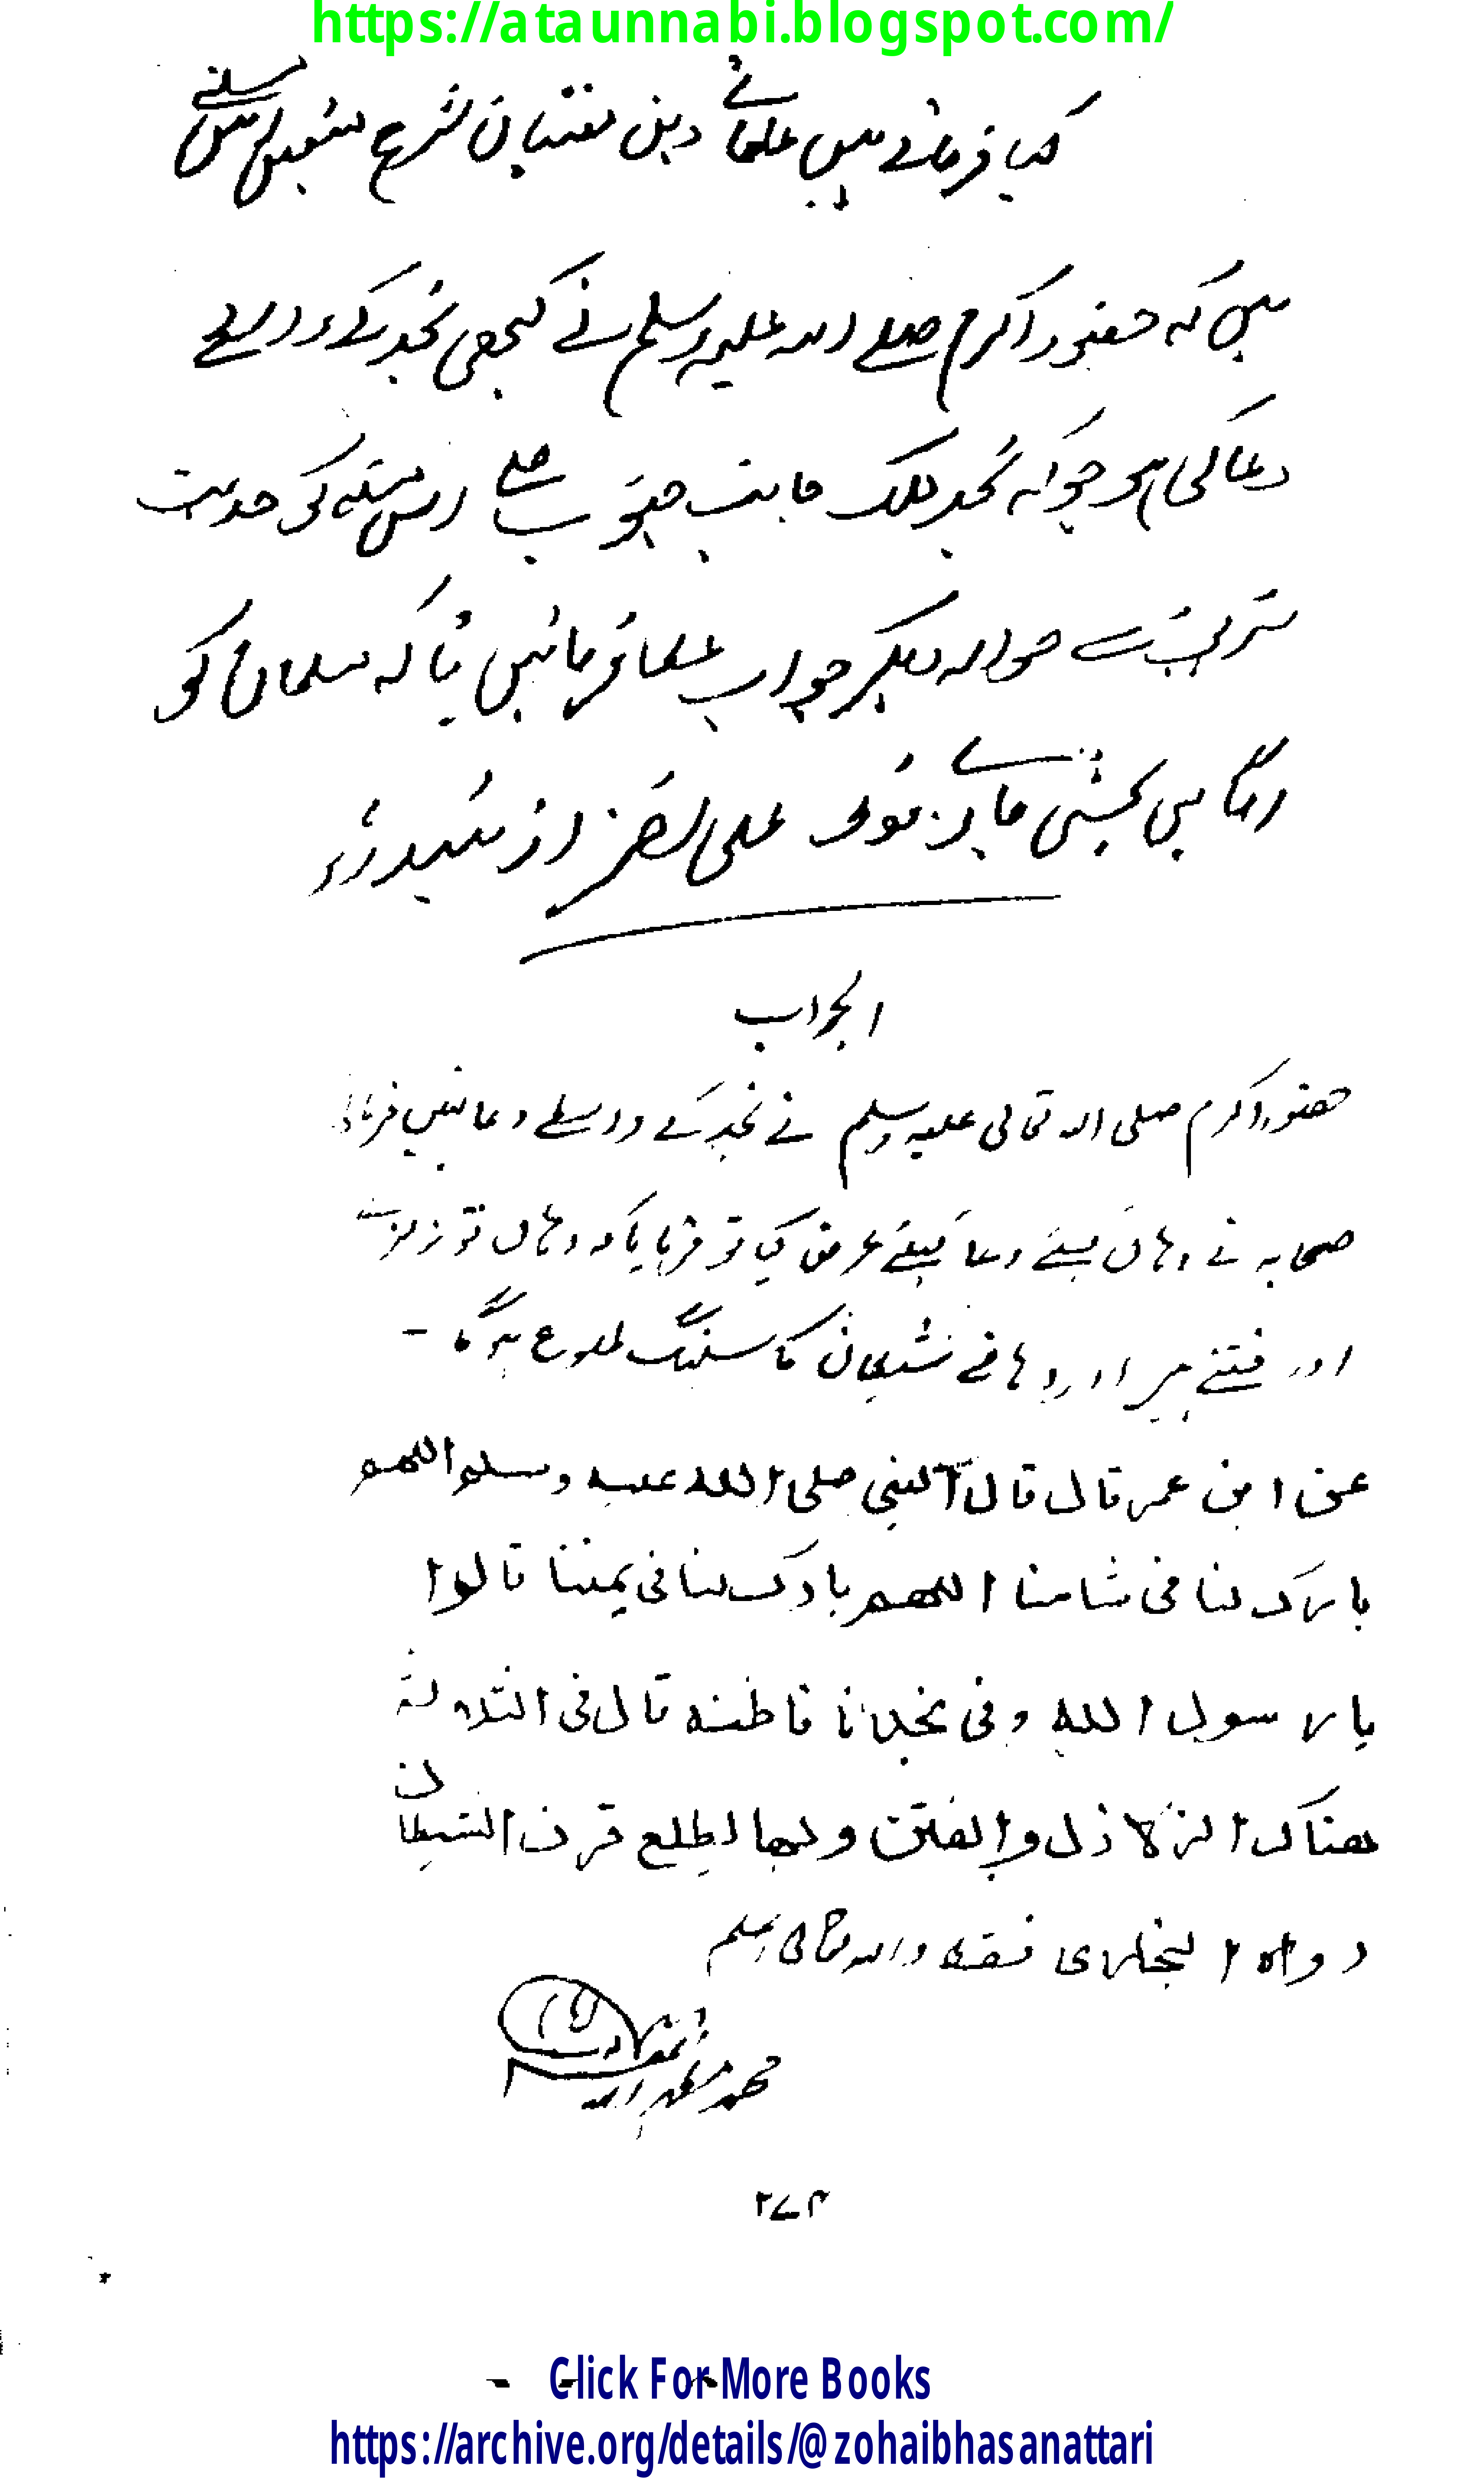 https://ataunnabi.blogspot.com/
کیا فرماتے ہیں علمائے دین مفتیان شرع متین اس مسئلے
میں کہ حضور اکرم صلے اللہ علیہ وسلم نے کبھی نجد کے واسطے
دعا کی ہو جو کہ نجد ملک جانب جنوب ہے اس مسئلہ کو حدیث
شریف سے حوالہ دیکر جواب عطا فرمائیں تاکہ مسلمان کو
علی
الجواب
حضور اکرم صلی اللہ تعالی علیہ وسلم نے نجد کے واسطے دعا نہیں فرمائی
صحابہ نے وہاں کیلئے دعا کیلئے عرض کیا تو فرمایا کہ وہاں تو زلزلے
اور فتنے ہیں اور وہاں سے شیطان کا سینگ طلوع ہوگا -
عن ابن عمر قال قال النبی صلی اللہ علیہ وسلم اللھم
بارک لنا فی شامنا اللھم بارک لنا فی یمننا قالوا
یا رسول اللہ و فی نجدنا فاظنہ قال فی الثلاثۃ
ھناک الزلازل والفتن وبھا یطلع قرن الشیطان
رواہ البخاری فقط واللہ تعالی اعلم
محمد مظہر اللہ
۲۷۴
Click For More Books
https://archive.org/details/@zohaibhasanattari